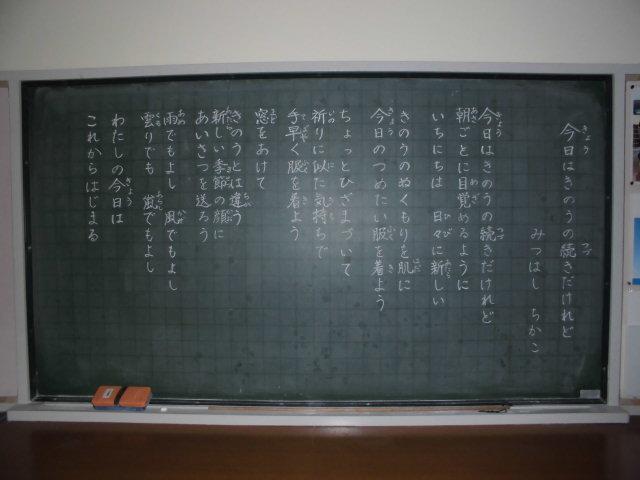 今日はきのうの続きだけれど
みつはし ちかこ
今日はきのうの続きだけれど
朝ごとに目覚めるように
いちにちは 日々に新しい
きのうのぬくもりを肌に
今日のつめたい服を着よう
ちょっとひざまづいて
祈りに似た気持ちで
手早く服を着よう
窓をあけて
きのうとは違う
新しい季節の顔に
あいさつを送ろう
雨でもよし 風でもよし
曇りでも 嵐でもよし
わたしの今日は
これからはじまる